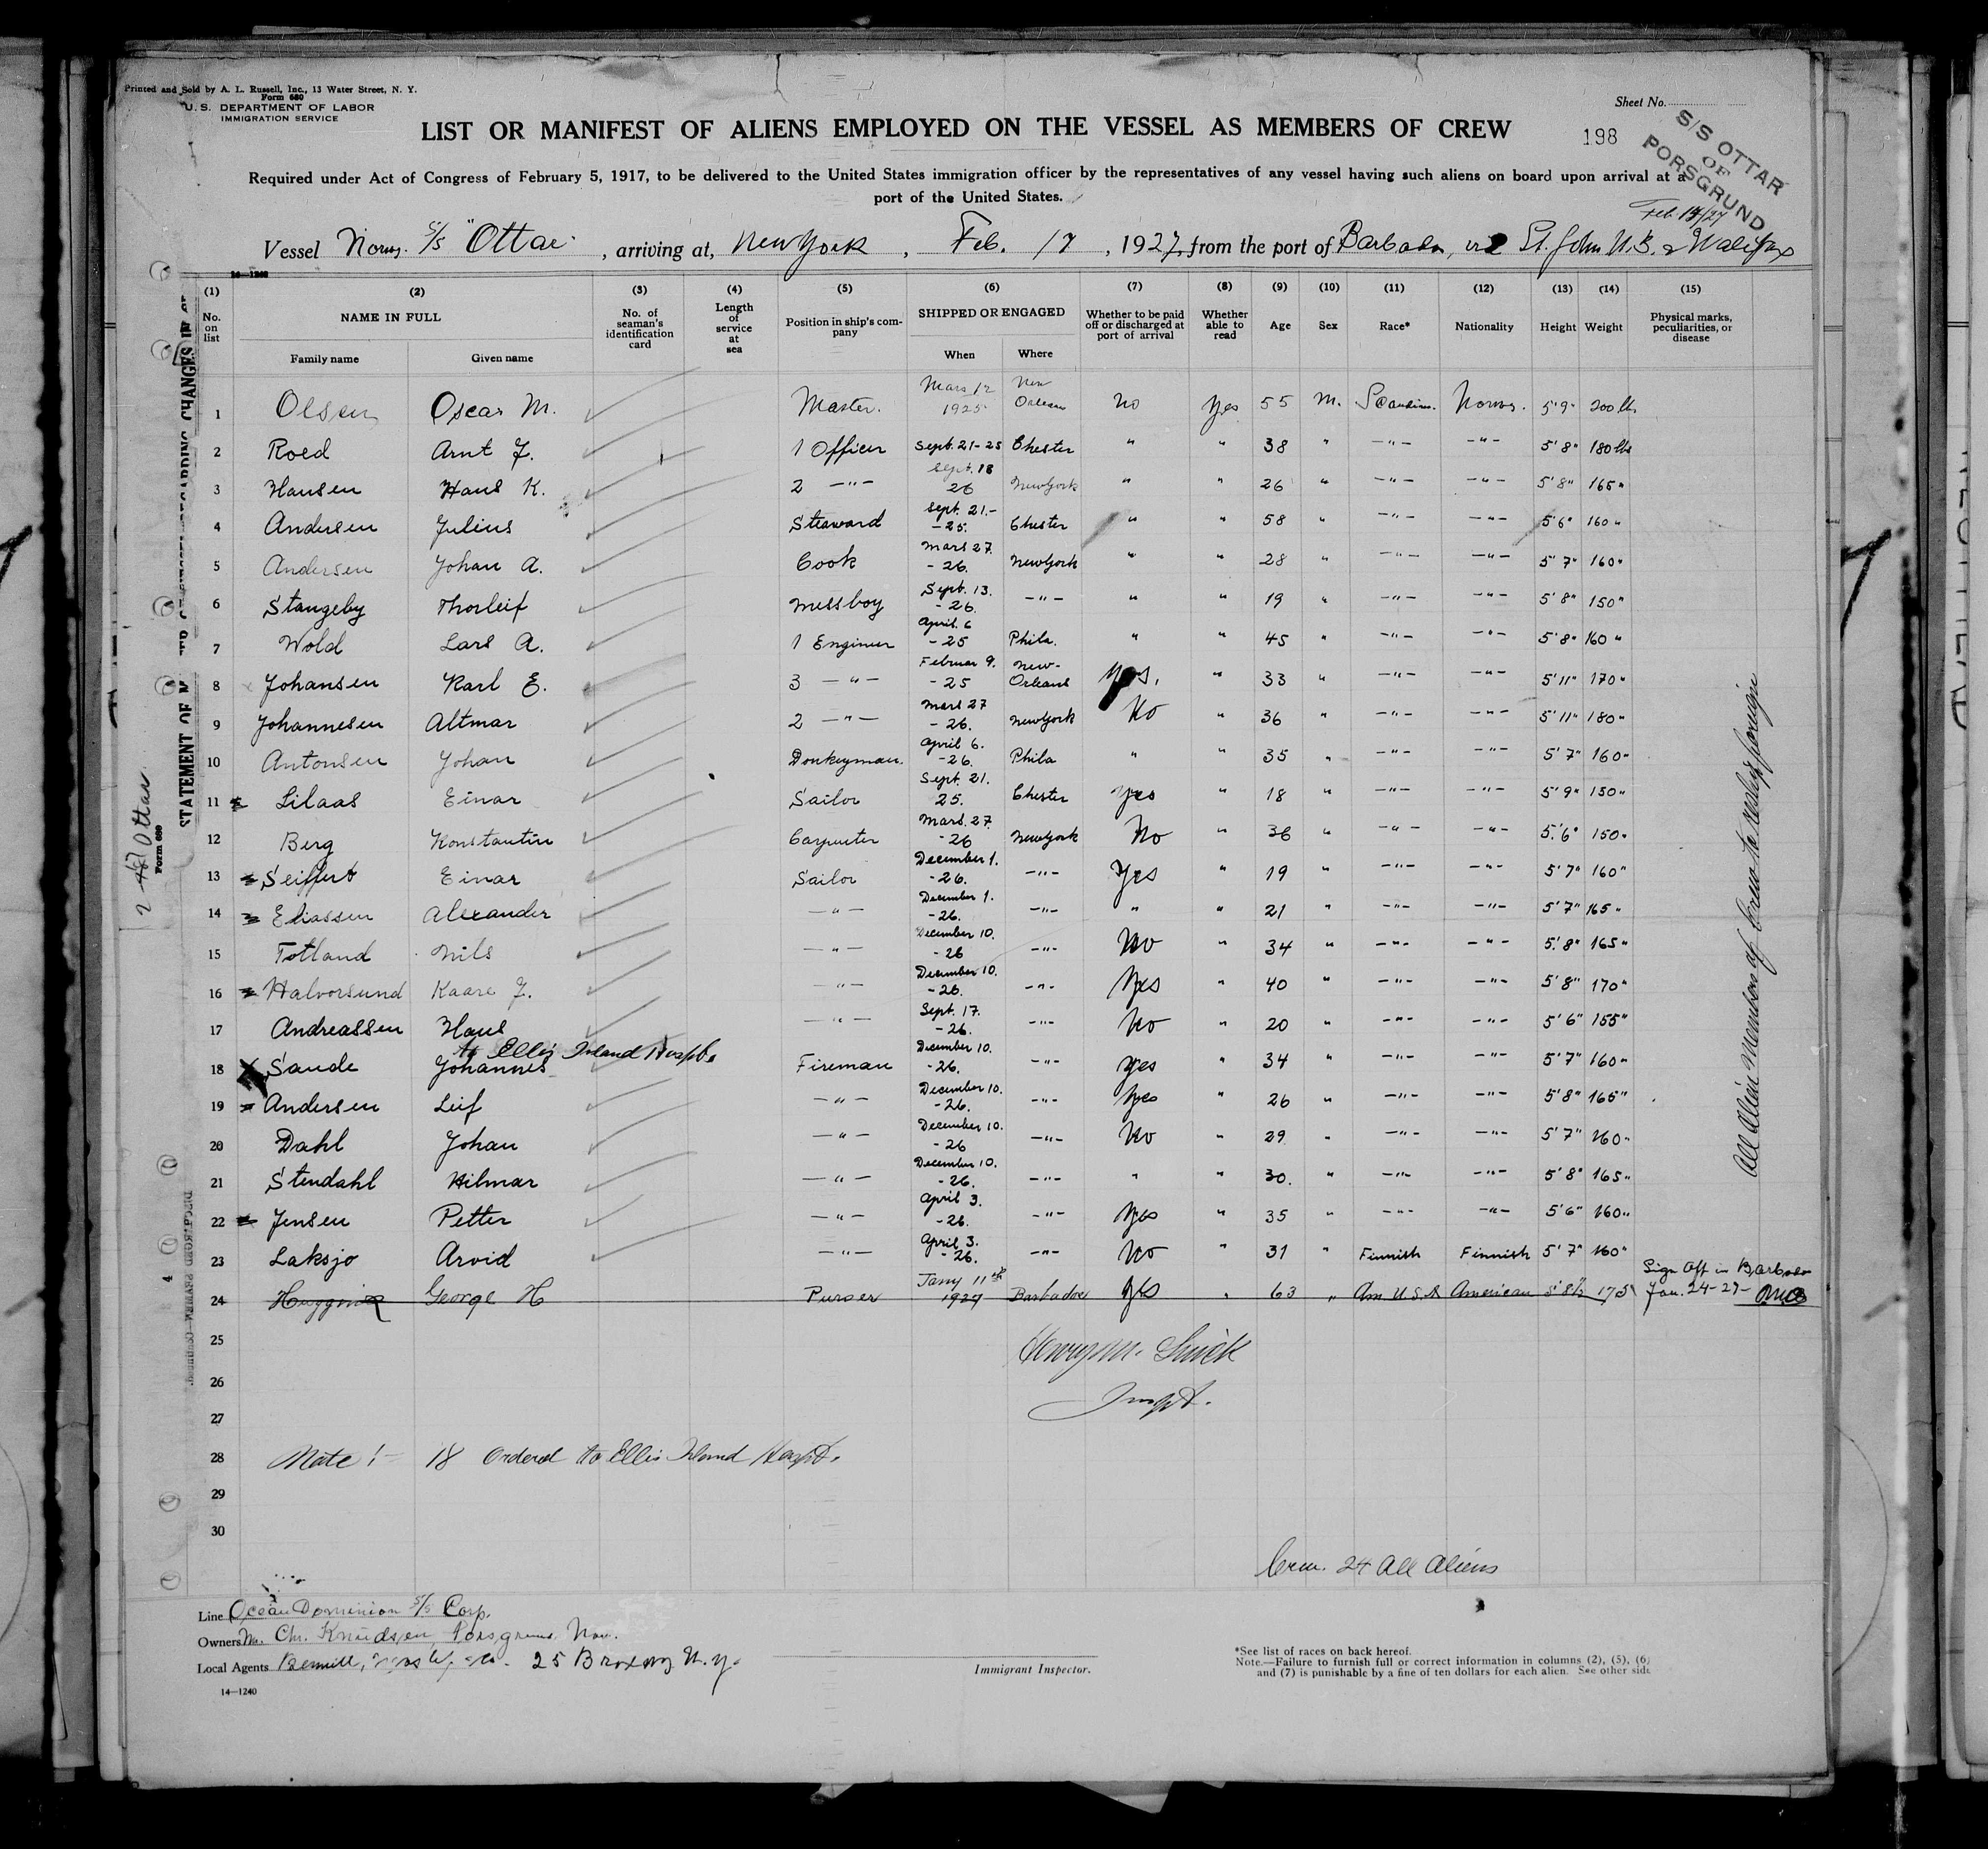 Printed and Sold by A. L. Russell, Inc., 13 Water Street, N. Y.
Form 680
U. S. DEPARTMENT OF LABOR
IMMIGRATION SERVICE
Sheet No.
LIST OR MANIFEST OF ALIENS EMPLOYED ON THE VESSEL AS MEMBERS OF CREW
198
S/S OTTAR
OF
PORSGRUND
Required under Act of Congress of February 5, 1917, to be delivered to the United States immigration officer by the representatives of any vessel having such aliens on board upon arrival at a
port of the United States.
Vessel Norw. S/S "Ottar" , arriving at, New York , Feb. 17 , 1927, from the port of Barbados, via St. John N.B. & Halifax
(1) (2) (3) (4) (5) (6) (7) (8) (9) (10) (11) (12) (13) (14) (15)
No. on list NAME IN FULL No. of seaman's identification card Length of service at sea Position in ship's company SHIPPED OR ENGAGED Whether to be paid off or discharged at port of arrival Whether able to read Age Sex Race* Nationality Height Weight Physical marks, peculiarities, or disease
Family name Given name When Where
1 Olsen Oscar M. Master. Mars 12 1925 New Orleans No Yes 55 M. Scandin. Norw. 5'9" 200 lbs
2 Roed Arnt J. 1 Officer Sept. 21-25 Chester " " 38 " -"- -"- 5'8" 180 lbs
3 Hansen Hans K. 2 -"- Sept. 18 26 New York " " 26 " -"- -"- 5'8" 165"
4 Andersen Julius Steaward Sept. 21.-25. Chester " " 58 " -"- -"- 5'6" 160"
5 Andersen Johan A. Cook Mars 27. -26. New York " " 28 " -"- -"- 5'7" 160"
6 Stangeby Thorleif Messboy Sept. 13. -26. -"- " " 19 " -"- -"- 5'8" 150"
7 Wold Lars A. 1 Enginer April. 6 -25 Phila. " " 45 " -"- -"- 5'8" 160"
8 Johansen Karl E. 3 -"- Februar 9. -25 New-Orleans Yes. " 33 " -"- -"- 5'11" 170"
9 Johannesen Altmar 2 -"- Mars 27 -26. New York No " 36 " -"- -"- 5'11" 180"
10 Antonsen Johan Donkeyman. April 6. -26. Phila " " 35 " -"- -"- 5'7" 160"
11 Lilaas Einar Sailor Sept. 21. 25. Chester Yes " 18 " -"- -"- 5'9" 150"
12 Berg Konstantin Carpenter Mars. 27. -26 New York No " 36 " -"- -"- 5'6" 150"
13 Seiffert Einar Sailor December 1. -26. -"- Yes " 19 " -"- -"- 5'7" 160"
14 Eliassen Alexander -"- December 1. -26. -"- " " 21 " -"- -"- 5'7" 165"
15 Totland Nils -"- December 10. -26 -"- No " 34 " -"- -"- 5'8" 165"
16 Halvorsund Kaare J. -"- December 10. -26. -"- Yes " 40 " -"- -"- 5'8" 170"
17 Andreassen Hans -"- Sept. 17. -26. -"- No " 20 " -"- -"- 5'6" 155"
to Ellis Island Hospt.
18 Sande Johannes Fireman December 10. -26. -"- Yes " 34 " -"- -"- 5'7" 160"
19 Andersen Leif -"- December 10. -26. -"- Yes " 26 " -"- -"- 5'8" 165"
20 Dahl Johan -"- December 10. -26 -"- No " 29 " -"- -"- 5'7" 160"
21 Stendahl Hilmar -"- December 10. -26. -"- " " 30. " -"- -"- 5'8" 165"
22 Jensen Petter -"- April 3. -26. -"- Yes " 35 " -"- -"- 5'6" 160"
23 Laksjo Arvid -"- April 3. -26. -"- No " 31 " Finnish Finnish 5'7" 160"
24 Huggins George H Purser Jany 11th 1927 Barbados Yes " 63 " Am U.S.A American 5'8½ 175 Sign Off in Barbados Jan. 24-27-
25
26
27
Inspt.
28 Note! - 18 Ordered to Ellis Island Hospt.
29
30
Crew. 24 All Aliens
All Alien Members of Crew to reship foreign
STATEMENT OF
Form 680
Ottar
Line Ocean Dominion S/S Corp.
Owners Chr. Knudsen, Porsgrund, Nor.
Local Agents 25 Broadway N.Y.
14—1240
Immigrant Inspector.
*See list of races on back hereof.
Note.—Failure to furnish full or correct information in columns (2), (5), (6)
and (7) is punishable by a fine of ten dollars for each alien. See other side